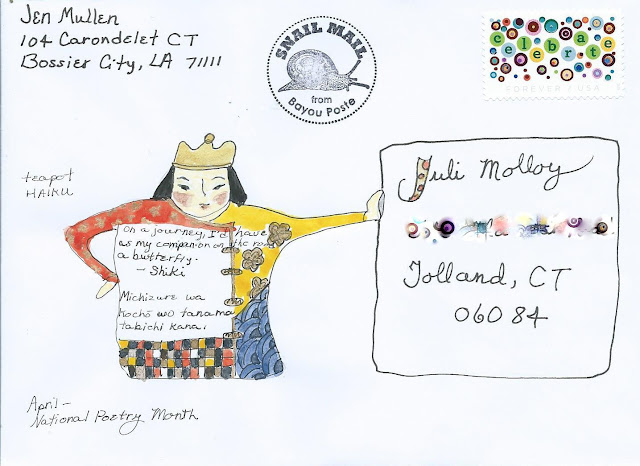 Jen Mullen
104 Carondelet CT
Bossier City, LA 71111
SNAIL MAIL
from
Bayou Poste
celebrate
FOREVER / USA
teapot
HAIKU
On a journey, I'd have
as my companion on the road
a butterfly.
- Shiki
Michizure wa
kochō wo tanomu
tabichi kana.
Juli Molloy
Tolland, CT
06084
April -
National Poetry Month